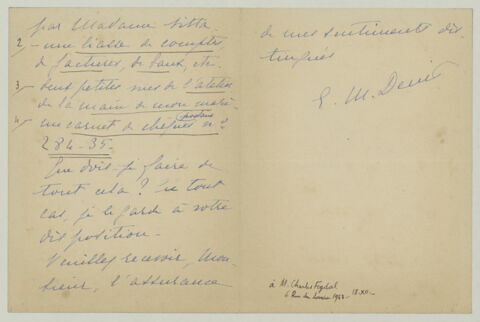 par Madame
2/ - une liasse de comptes
de factures, de baux, etc.
3/ - deux petites vues de l'atelier
de la main de mon mari -
4/ - un carnet de chèques postaux n°
284-35.
Que dois-je faire de
tout cela ? En tout
cas, je le garde à votre
disposition -
Veuillez recevoir, Mon-
sieur, l'assurance
de mes sentiments dis-
tingués
M. Denis
à M. Charles Fegdal
6 Rue du 18.XII.-